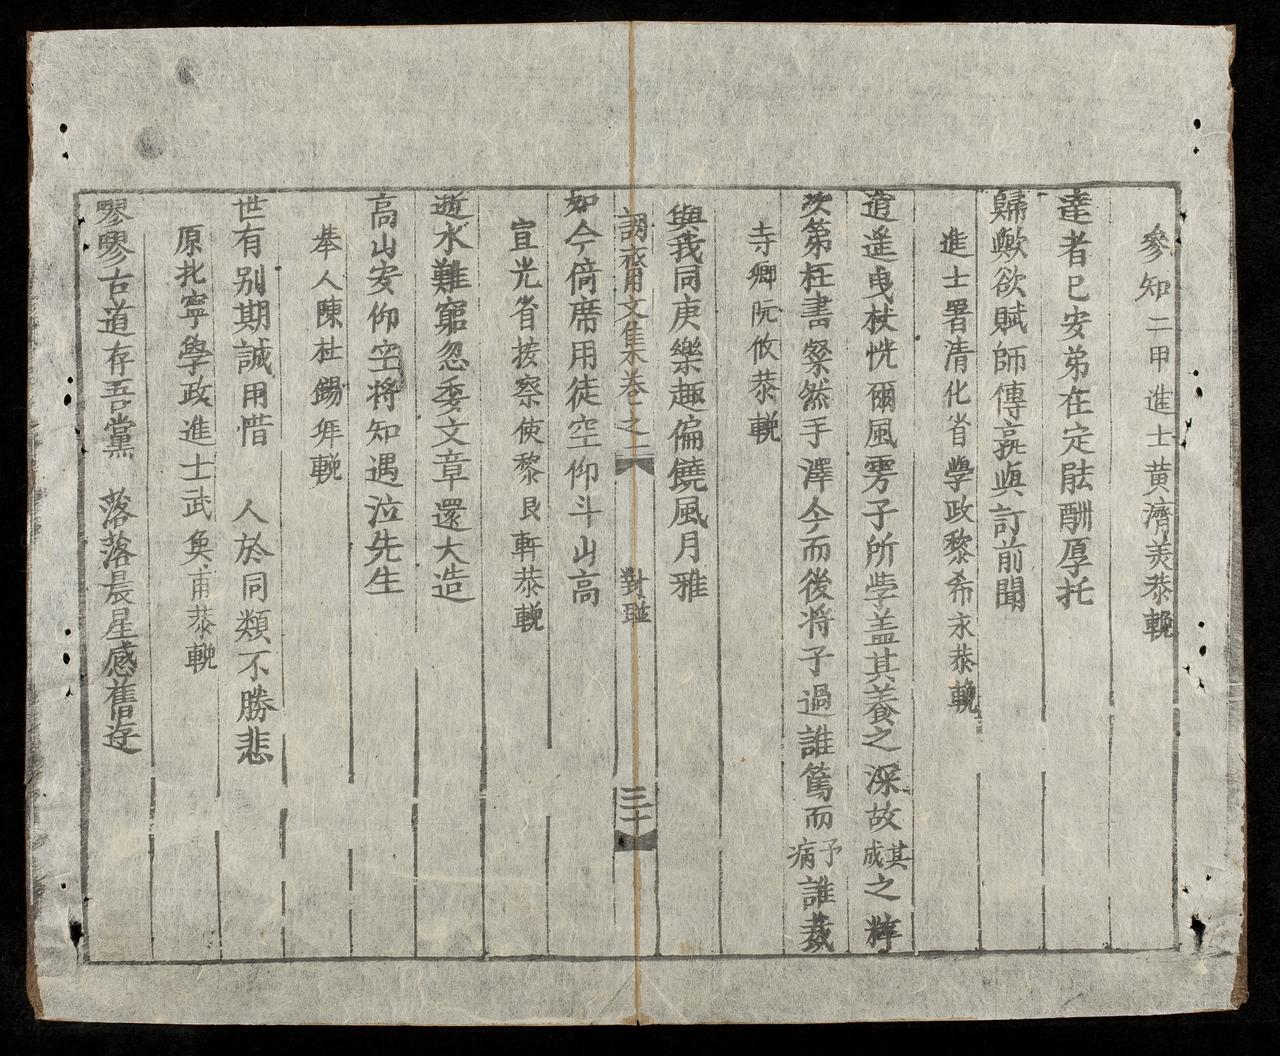 參知二甲進士黃濟美恭輓
達者已安弟在定𦙶酬厚托
歸歟欲賦師傳孰與訂前聞
進士署清化省學政黎希永恭輓
逍遥曳杖恍爾風雩子所學盖其養之深故其成之粹
次第枉書粲然手澤今而後将子過誰篤而予病誰裁
寺卿阮攸恭輓
與我同庚樂趣偏饒風月雅
調齋文集卷之二 對聯 三十
如今倚席用徒空仰斗山高
宣光省按察使黎艮軒恭輓
逝水難窮忽委文章還大造
高山安仰空将知遇泣先生
奉人陳杜錫年輓
世有别期誠用惜 人於同類不勝悲
原北寧學政進士武奐甫恭輓
寥寥古道存吾黨 落落晨星感舊逰